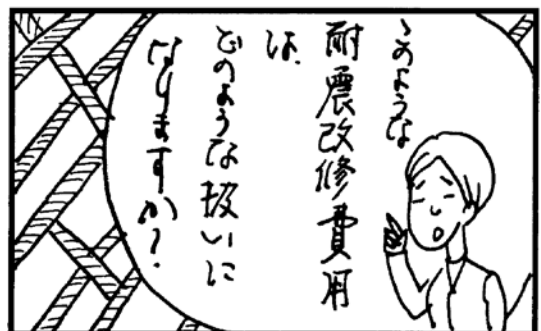 このような
耐震改修費用
は、
どのような扱いに
なりますか？